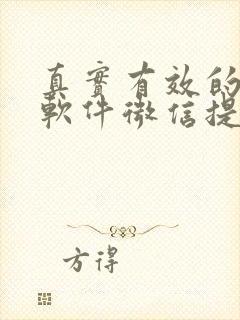 真實有效的
軟件微信提
方得